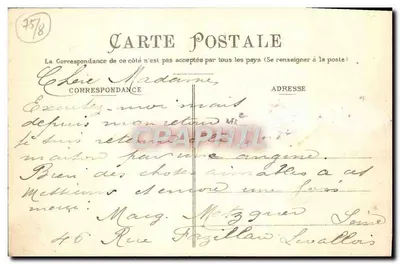 75/8
CARTE POSTALE
La Correspondance de ce côté n'est pas acceptée par tous les pays (Se renseigner à la poste)
Chère Madame,
CORRESPONDANCE
ADRESSE
Excusez-moi mais
depuis mon retour Mlle
Je suis
CPARAMA
maison par une angine.
Bien des choses aimables à ces
Messieurs et encore une fois
merci.
Marg. Metzguer Seine
46 Rue Levallois